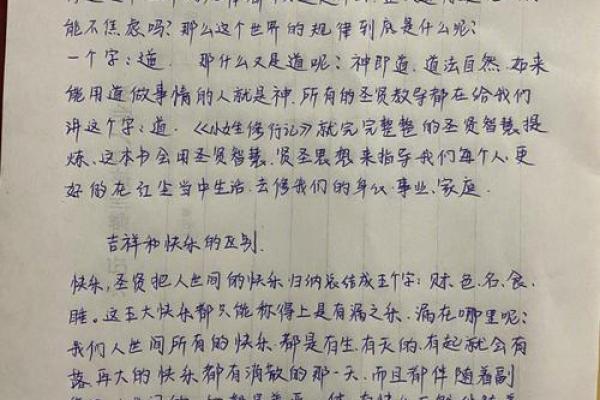 能不焦虑吗?那么这个世界的规律到底是什么呢?
一个字:道。 那什么又是道呢?神即道,道法自然,如来
能用道做事情的人就是神.所有的圣贤教导都在给我们
讲这个字:道.《人生修行记》就完完整整的圣贤智慧提
炼、这本书会用圣贤智慧、贤圣思想来指导我们每个人.更
好的在红尘当中生活.去修我们的身心、事业、家庭.
吉祥和快乐的区别.
快乐,圣贤把人世间的快乐归纳总结成五个字:财、色、名、食、
睡。这五大快乐都只能称得上是有漏之乐.漏在哪里呢?
我们人世间所有的快乐都是有生.有灭的.有起就会有
落.再大的快乐都有消散的那一天.而且都伴随着副